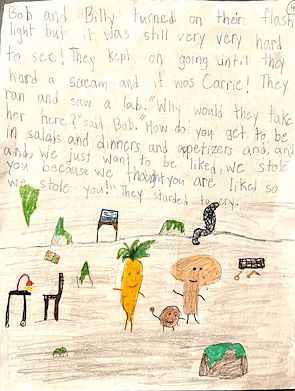 Bob and Billy turned on their flash
light but it was still very very hard
to see! They kept on going until they
hard a scream and it was Carrie! They
ran and saw a lab. "Why would they take
her here?" said Bob. "How do you get to be
in salads and dinners and appetizers and, and
and, we just want to be liked, we stole
you because we thought you are liked so
we stole you!" They starded to cry.